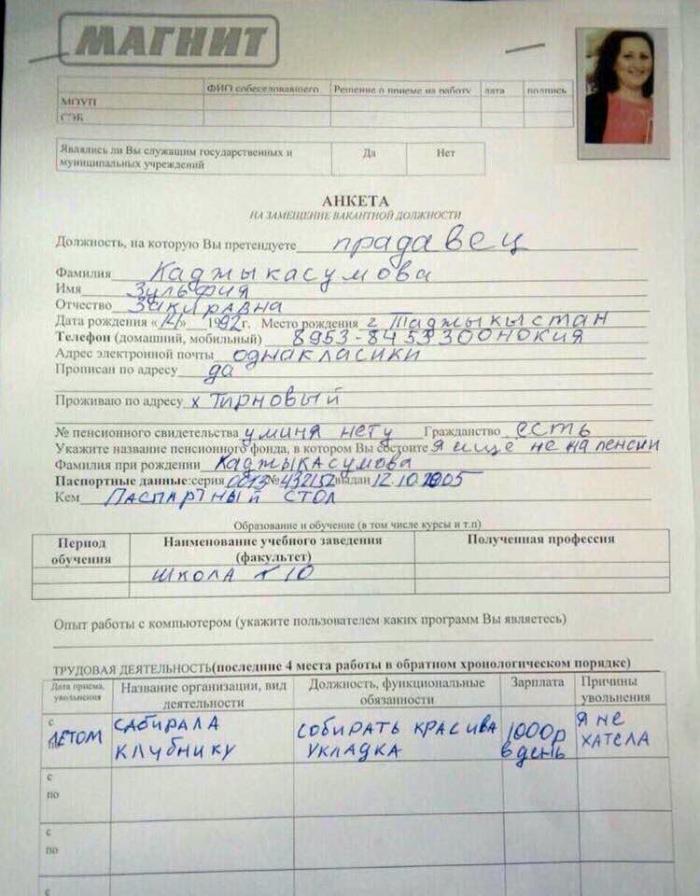 МАГНИТ
ФИО собеседовавшего Решение о приеме на работу дата подпись
МОУП
СЭБ
Являлись ли Вы служащим государственных и муниципальных учреждений Да Нет
АНКЕТА
НА ЗАМЕЩЕНИЕ ВАКАНТНОЙ ДОЛЖНОСТИ
Должность, на которую Вы претендуете прадавец
Фамилия Каджыкасумова
Имя Зульфия
Отчество Закиравна
Дата рождения « » 1992 г. Место рождения г Таджыкыстан
Телефон (домашний, мобильный) 8953-8453300нокия
Адрес электронной почты однакласики
Прописан по адресу да
Проживаю по адресу х Тирновый
№ пенсионного свидетельства у миня нету Гражданство есть
Укажите название пенсионного фонда, в котором Вы состоите я ищё не на пенсии
Фамилия при рождении Каджыкасумова
Паспортные данные:серия 0013 № 432152 выдан 12.10.2005
Кем Паспартный стол
Образование и обучение (в том числе курсы и т.п)
Период обучения Наименование учебного заведения (факультет) Полученная профессия
школа 10
Опыт работы с компьютером (укажите пользователем каких программ Вы являетесь)
ТРУДОВАЯ ДЕЯТЕЛЬНОСТЬ(последние 4 места работы в обратном хронологическом порядке)
Дата приема, увольнения Название организации, вид деятельности Должность, функциональные обязанности Зарплата Причины увольнения
с летом сабирала собирать красива 1000р я не
по клубнику укладка в день хатела
с
по
с
по
с